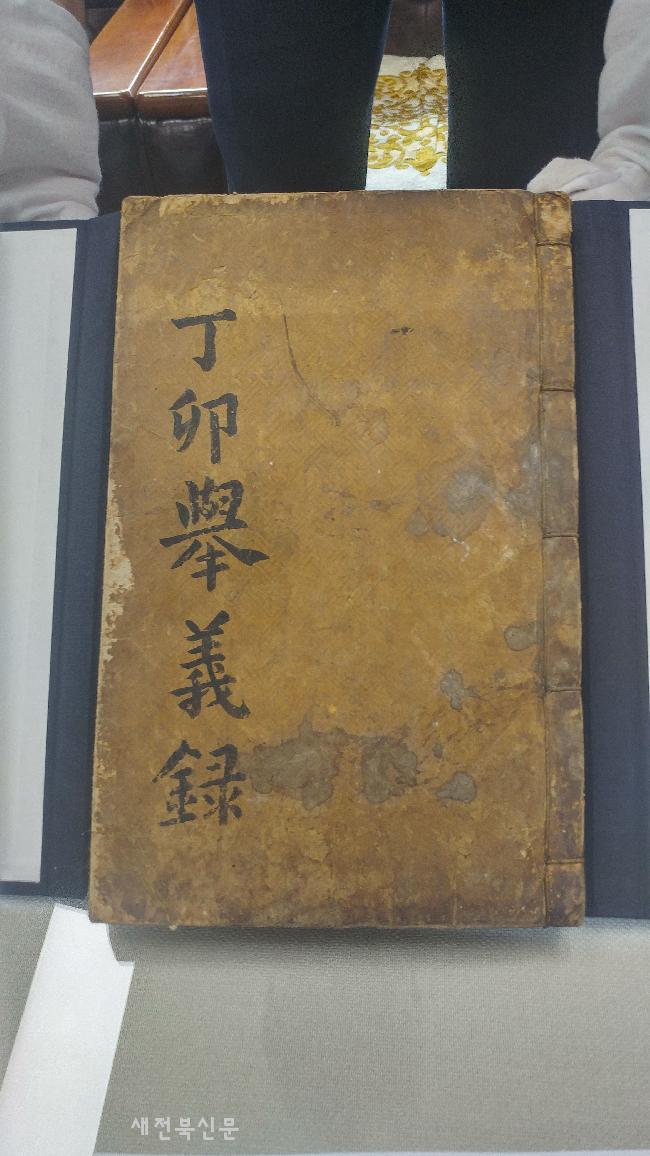 丁卯舉義録
새전북신문